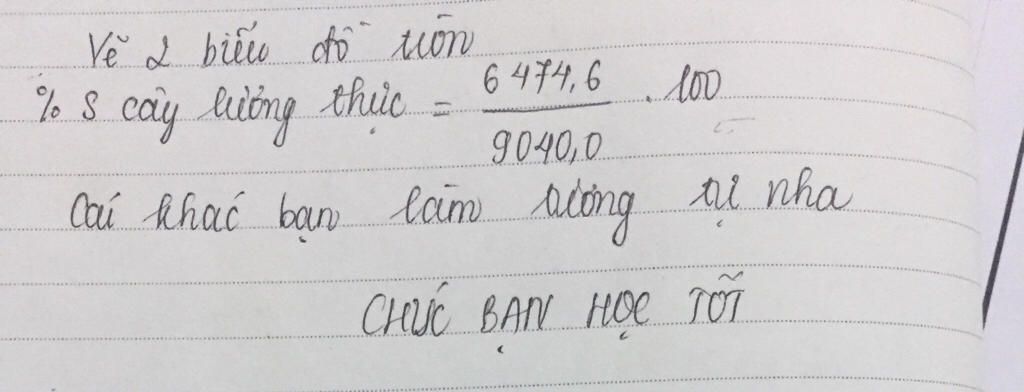 Vẽ 2 biểu đồ tròn
% S cây lương thực = 6474,6 / 9040,0 . 100
Cái khác bạn làm tương tự nha
CHÚC BẠN HỌC TỐT